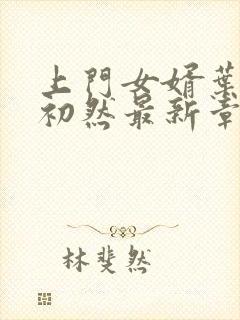 上門女婿葉
初然最新章
林斐然